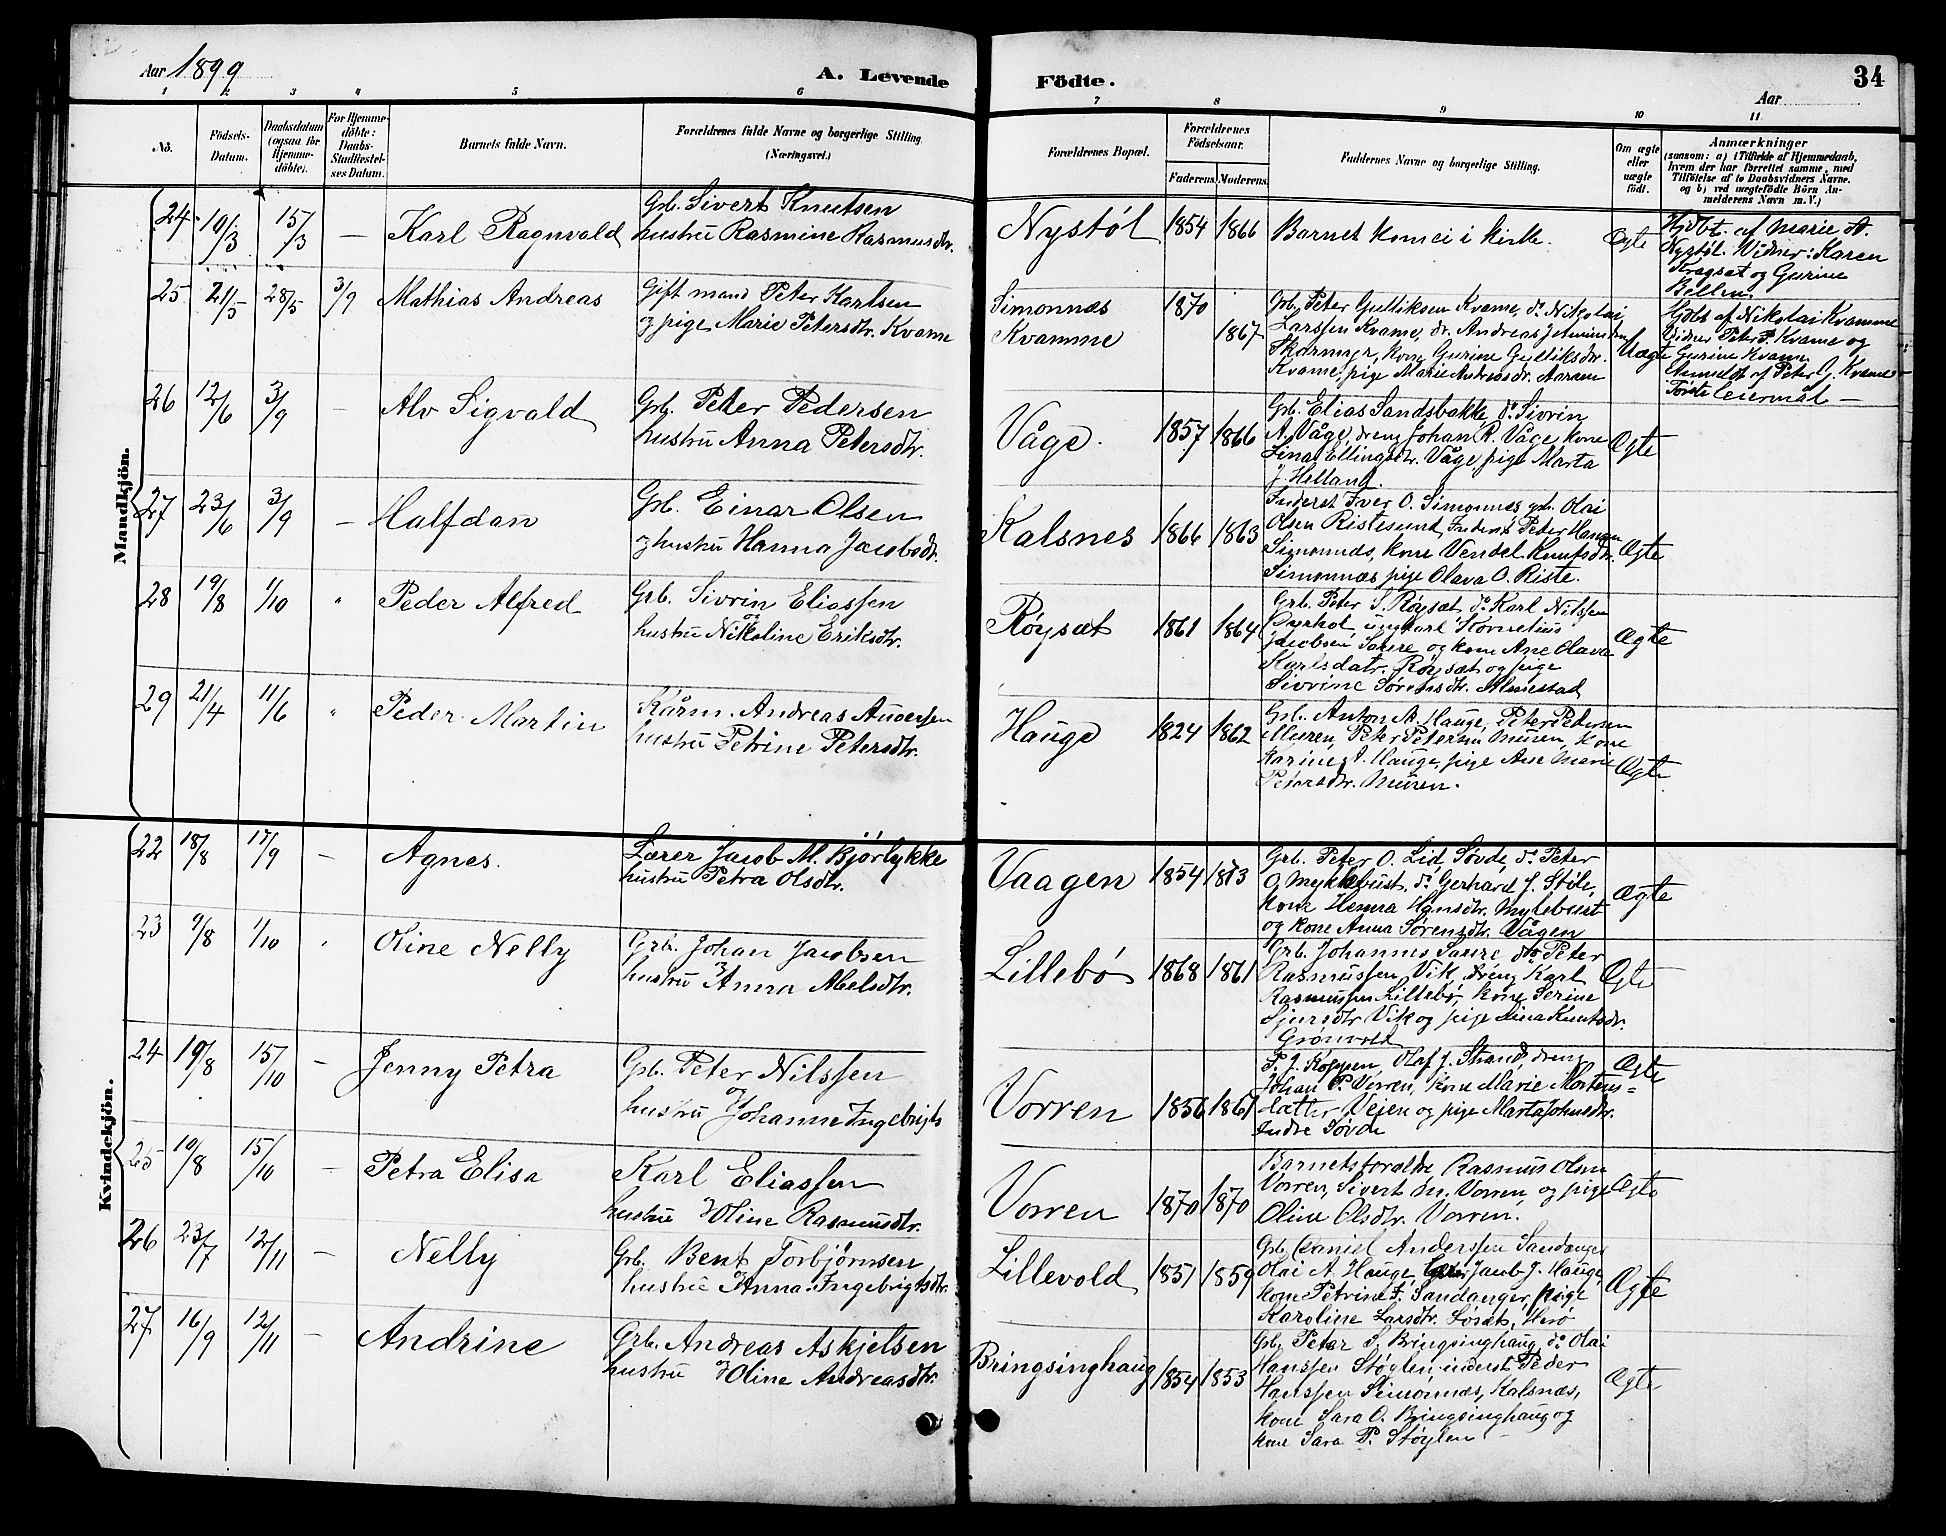 Aar 1899
A. Levende Födte.
34
Aar
1 2 3 4 5 6 7 8 9 10 11
Nö.
Födsels-Datum.
Daabsdatum (ogsaa for Hjemme-döbte).
For Hjemme-döbte: Daabs-Stadfæstel-ses Datum.
Barnets fulde Navn.
Forældrenes fulde Navne og borgerlige Stilling. (Næringsvei.)
Forældrenes Bopæl.
Forældrenes Födselsaar.
Faderens. Moderens.
Faddernes Navne og borgerlige Stilling.
Om ægte eller uægte födt.
Anmærkninger
(saasom: a) i Tilfælde af Hjemmedaab,
hvem der har forrettet samme, med
Tilföielse af to Daabsvidners Navne.
og b) ved uægtefödte Börn An-
melderens Navn m. V.)
Mandkjön.
24. 10/3 15/3 — Karl Ragnvald
Grb. Sivert Knutsen
hustru Rasmine Rasmusdtr.
Nystøl 1854 1866
Barnet kom ei i kirke.
Ægte
Hjdbt. af Marie A.
Nystøl. Vidner: Karen
Kragset og Gurine
Bellen
25. 21/5 28/5 3/9 Mathias Andreas
Gift mand Peter Karlsen
og pige Marie Petersdtr. Kvame
Simonnæs
Kvamme
1870
1867
Grb. Peter Gulliksen Kvame, do Nikolai
Larssen Kvame, dr. Andreas
kone Gurine Gulliksdtr.
Kvame, pige Marie Andreasdr. Aaram
Uægte
Hjdbt af Nikolai Kvamme
Vidner Peter P. Kvame og
Gurine Kvam.
Anmeldt af Peter G. Kvame
Første leiermål —
26 12/6 3/9 — Alv Sigvald
Grb. Peter Pedersen
hustru Anna Petersdtr.
Våge. 1857 1866
Grb. Elias Sandsbakke, do Sivrin
A. Våge, dreng Johan R. Våge, kone
Lina Ellingsdtr. Våge, pige Marta
J. Helland.
Ægte
27 23/6 3/9 — Halfdan
Grb. Einar Olsen
og hustru Hanna Jacobsdtr.
Kalsnes 1866 1863
Inderst Iver O. Simonnes grb. Olai
Olsen Ristesund, Inderst Peter Hansen
Simonnæs, kone Vendel Knutsdtr.
Simonnæs, pige Olava O. Riste.
Ægte
28 19/8 1/10 " Peder Alfred
Grb. Sivrin Eliassen
hustru Nikoline Eriksdtr.
Røysæt 1861 1864
Grb. Peter S. Røysæt, do Karl Nilssen
Pyrhol, ungkarl Kornelius
Jacobsen Saure og kone Ane Olava
Karlsdatr. Røysæt og pige
Sivrine Sørensdtr. Almestad
Ægte
29 21/4 11/6 " Peder Martin
Kårm. Andreas Andersen
hustru Petrine Petersdtr.
Hauge 1824 1862
Grb. Anton A. Hauge, Peter Pedersen
Muren, Peter Petersen Muren, kone
Karine A. Hauge, pige Ane Marie
Petersdtr. Muren.
Ægte
Kvindekjön.
22 18/8 17/9 — Agnes.
Lærer Jacob M. Bjørlykke
hustru Petra Olsdtr.
Vaagen 1854 1873
Grb. Peter O. Lid, Søvde, do Peter
O Myklebust, do Gerhard J. Støle,
kone Henna Hansdtr. Myklebust
og kone Anna Sørensdtr. Vågen
Ægte
23 9/8 1/10 " Oline Nelly
Grb. Johan Jacobsen
hustru Anna Abelsdtr.
Lillebø 1868 1861
Grb. Johannes Saure, do Peter
Rasmussen Vik, dreng Karl
Rasmussen Lillebø, kone Serine
Sjursdtr Vik og pige Lina Knutsdr.
Grønvold
Ægte
24 19/8 15/10 — Jenny Petra
Grb. Peter Nilssen
hustru Johanne Ingebrigts
Vorren 1856 1861
P. J. Koppen, Olaf J. Strand, dreng
Johan P. Vorren, kone Marie Mortens-
datter, Veien og pige Marta Johnsdtr.
Indre Søvde
Ægte
25 19/8 15/10 — Petra Elisa
Karl Eliassen
hustru Oline Rasmusdtr.
Vorren 1870 1870
Barnets foreldre Rasmus Olsen
Vorren, Sivert M. Vorren og pige
Oline Olsdtr. Vorren.
Ægte
26 23/7 12/11 — Nelly
Grb. Bent Torbjørnsen
hustru Anna Ingebrigtsdtr.
Lillevold 1851 1859
Grb. Daniel Anderssen Sandanger
Olai A. Hauge, Jacob J. Hauge,
kone Petrine F. Sandanger, pige
Karoline Larsdtr. Løset, Herø
Ægte
27 16/9 12/11 — Andrine
Grb. Andreas Askjelsen
hustru Oline Andreasdtr.
Bringsinghaug 1854 1853
Grb. Peter S. Bringsinghaug, do Olai
Hanssen Støylen, inderst Peder
Hanssen Simonnæs, Kalsnæs,
kone Sara O. Bringsinghaug og
kone Sara P. Støylen —
Ægte